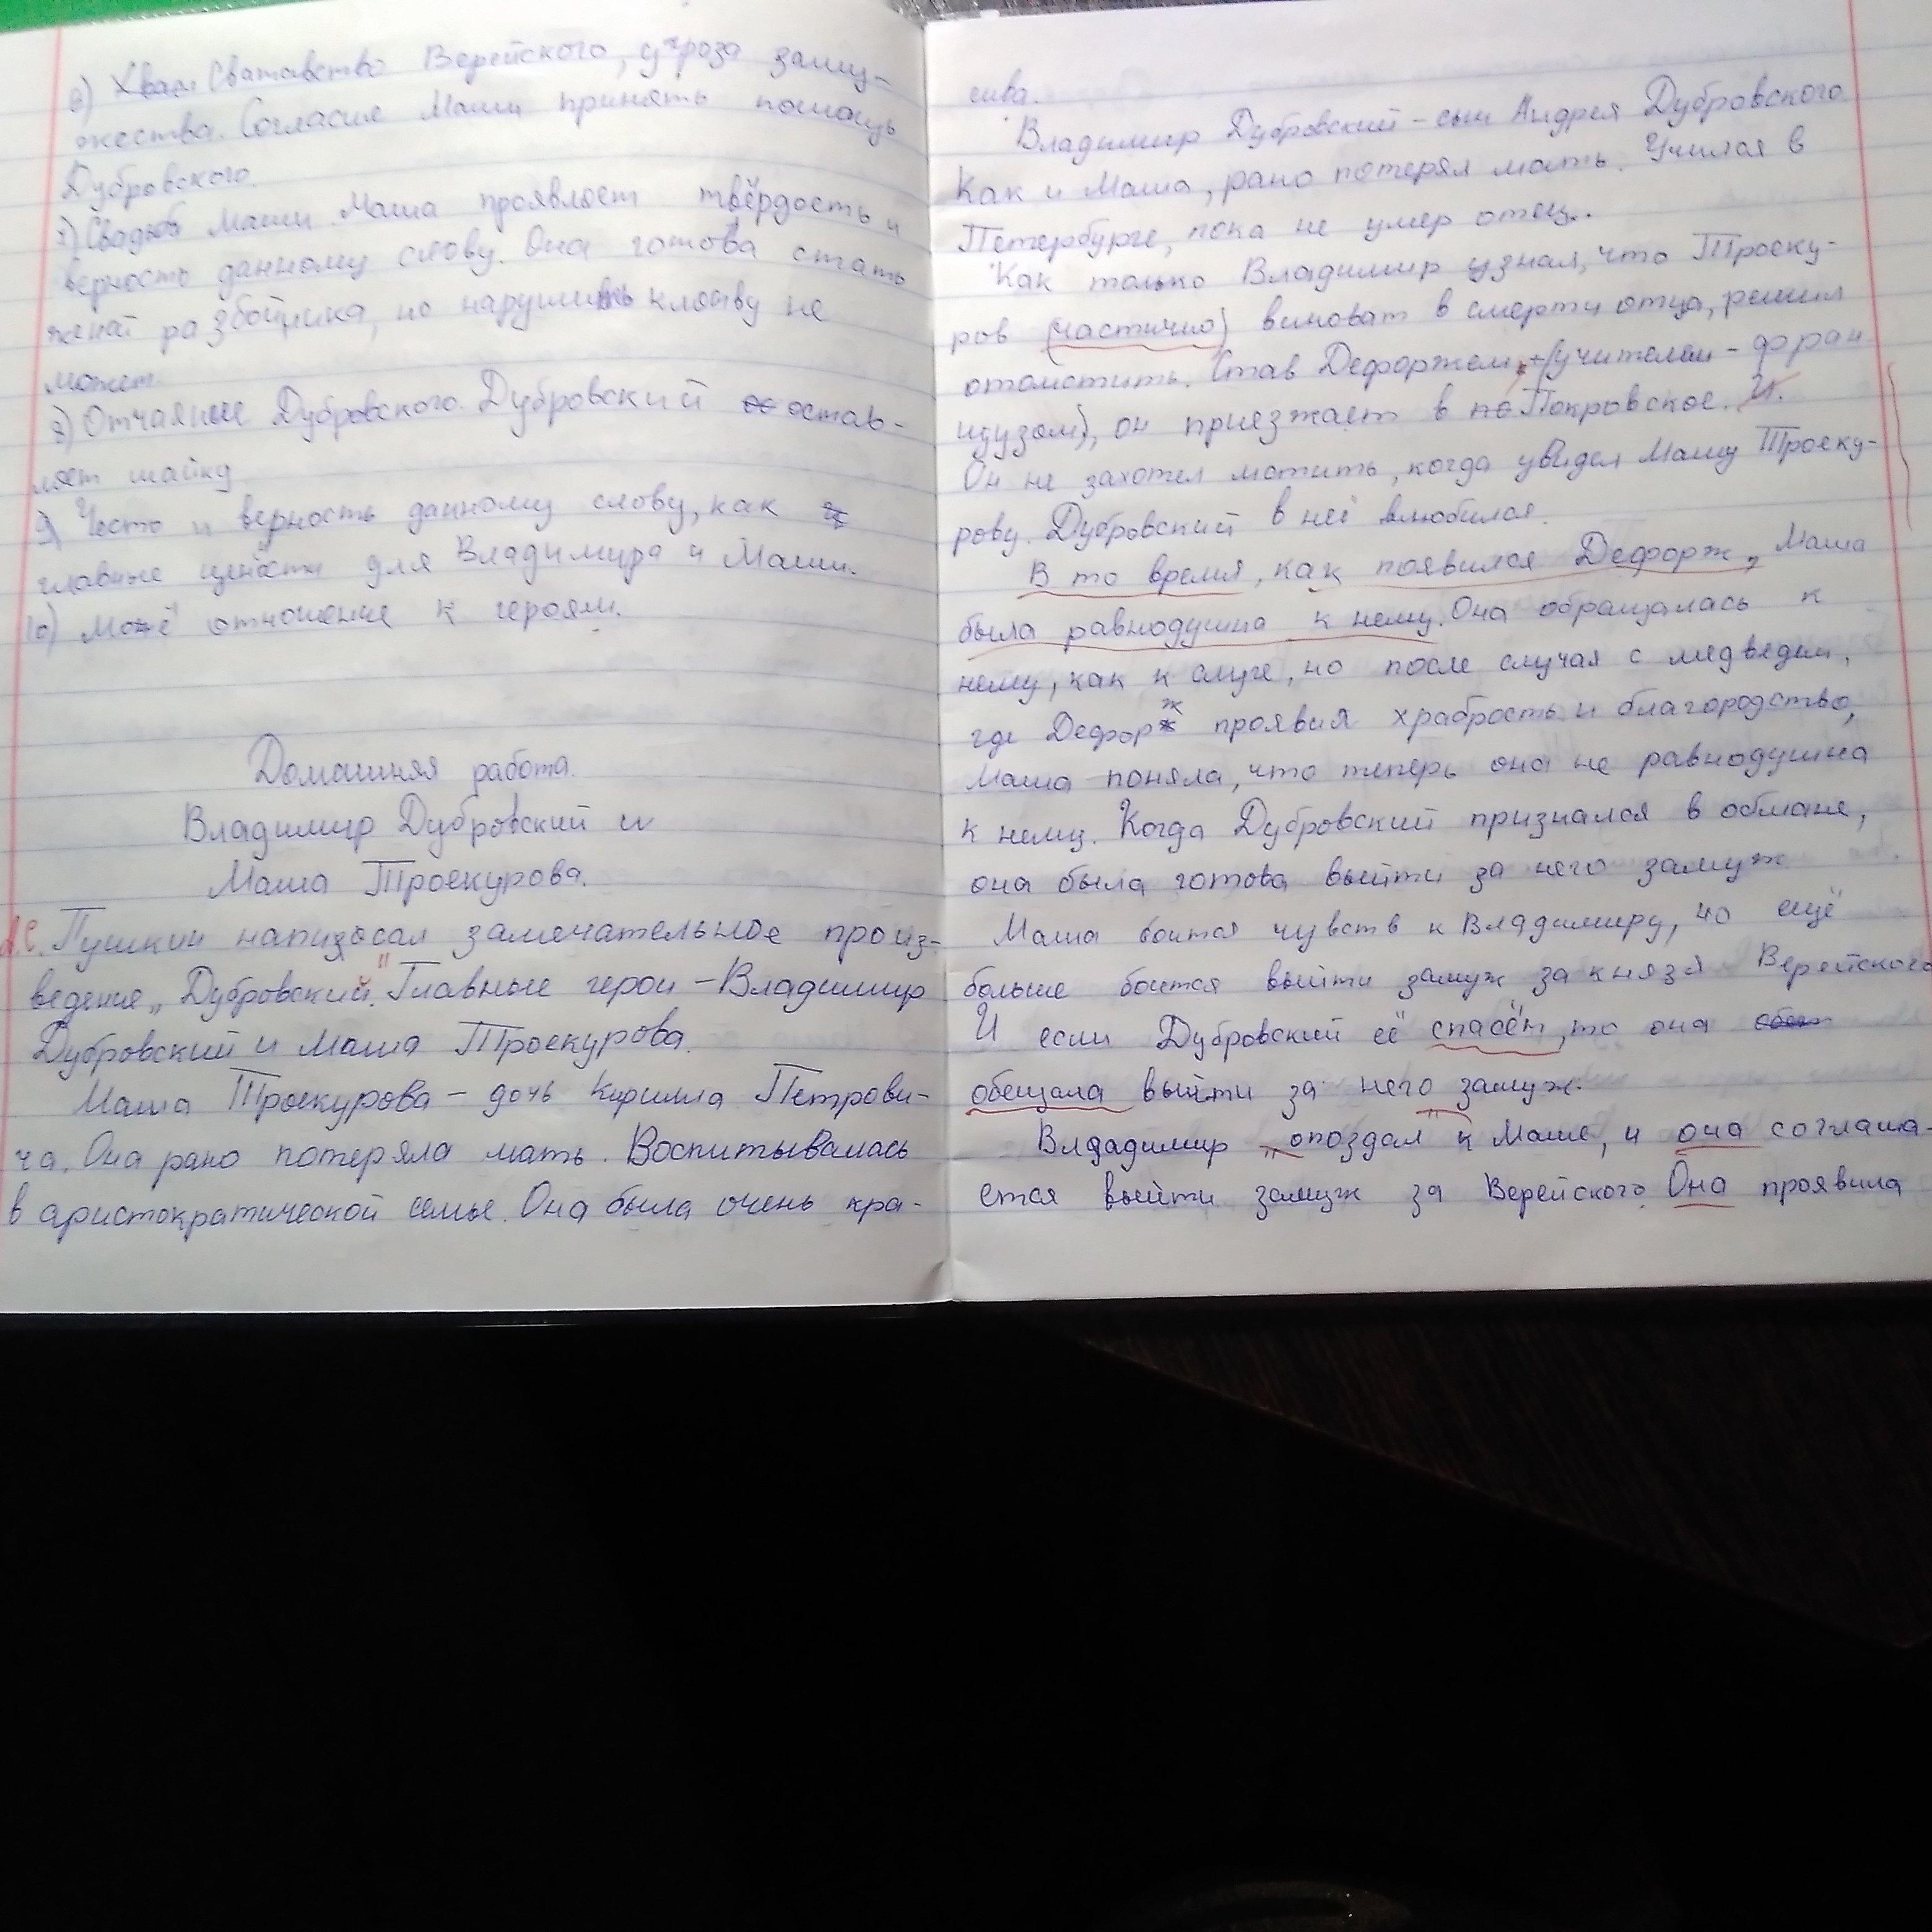 6) Хван Сватавство Верейского, угроза заму-
жества. Согласие Маши принять помощь
Дубровского.
7) Свадьба Маши. Маша проявляет твёрдость и
верность данному слову. Она готова стать
женой разбойника, но нарушить клятву не
может.
8) Отчаяние Дубровского. Дубровский остав-
ляет шайку
9) Честь и верность данному слову, как
главные цености для Владимира и Маши.
10) Моё отношение к героям.
Домашняя работа.
Владимир Дубровский и
Маша Троекурова.
А.С. Пушкин написал замечательное произ-
ведение „Дубровский". Главные герои – Владимир
Дубровский и Маша Троекурова.
Маша Троекурова – дочь Кирилла Петрови-
ча. Она рано потеряла мать. Воспитывалась
в аристократической семье. Она была очень кра-
сива.
Владимир Дубровский – сын Андрея Дубровского.
Как и Маша, рано потерял мать. Учился в
Петербурге, пока не умер отец.
Как только Владимир узнал, что Троеку-
ров (частично) виноват в смерти отца, решил
отомстить. Став Дефоржем (учителем – фран-
цузом), он приезжает в по Покровское. И.
Он не захотел мстить, когда увидел Машу Троеку-
рову. Дубровский в неё влюбился.
В то время, как появился Дефорж, Маша
была равнодушна к нему. Она обращалась к
нему, как к слуге, но после случая с медведем,
где Дефорж проявил храбрость и благородство,
Маша поняла, что теперь она не равнодушна
к нему. Когда Дубровский признался в обмане,
она была готова выйти за него замуж
Маша боится чувств к Владимиру, но ещё
больше боится выйти замуж за князя Верейского
И если Дубровский её спасёт, то она обет
обещала выйти за него замуж.
Влададимир „опоздал" к Маше, и она соглаша-
ется выйти замуж за Верейского. Она проявила